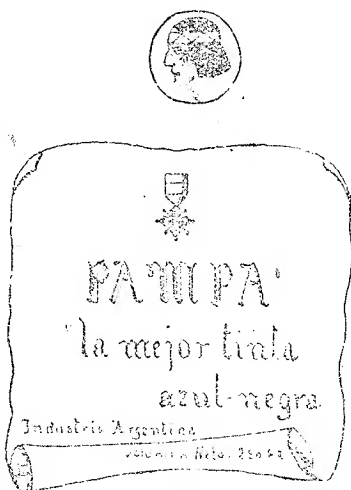 PAMPA
"la mejor tinta
azul-negra
Industria Argentina
Neto.